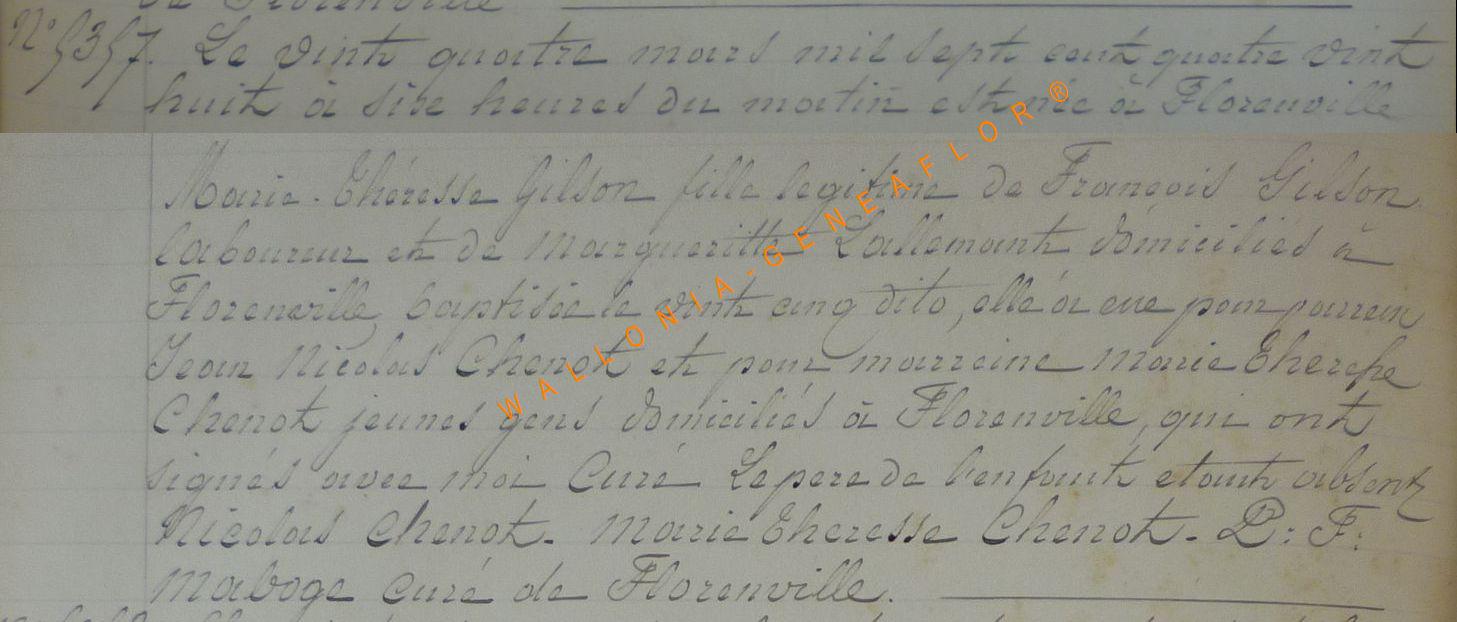 de Florenville
N° 5357. Le vint quatre mars mil sept cent quatre vint
huit à sixe heures du matin est née à Florenville
Marie-Théresse Gilson fille legitime de François Gilson
laboureur et de Margueritte Lallemant domiciliés à
Florenville, baptisée le vint cinq dito, elle à eue pour parrein
Jean Nicolas Chenot et pour marreine Marie Therese
Chenot jeunes gens domiciliés à Florenville, qui ont
signés avec moi Curé Le pere de l'enfant etant absent
Nicolas Chenot. Marie Theresse Chenot. P: F:
Maboge curé de Florenville.
WALLONIA-GENEAFLOR®